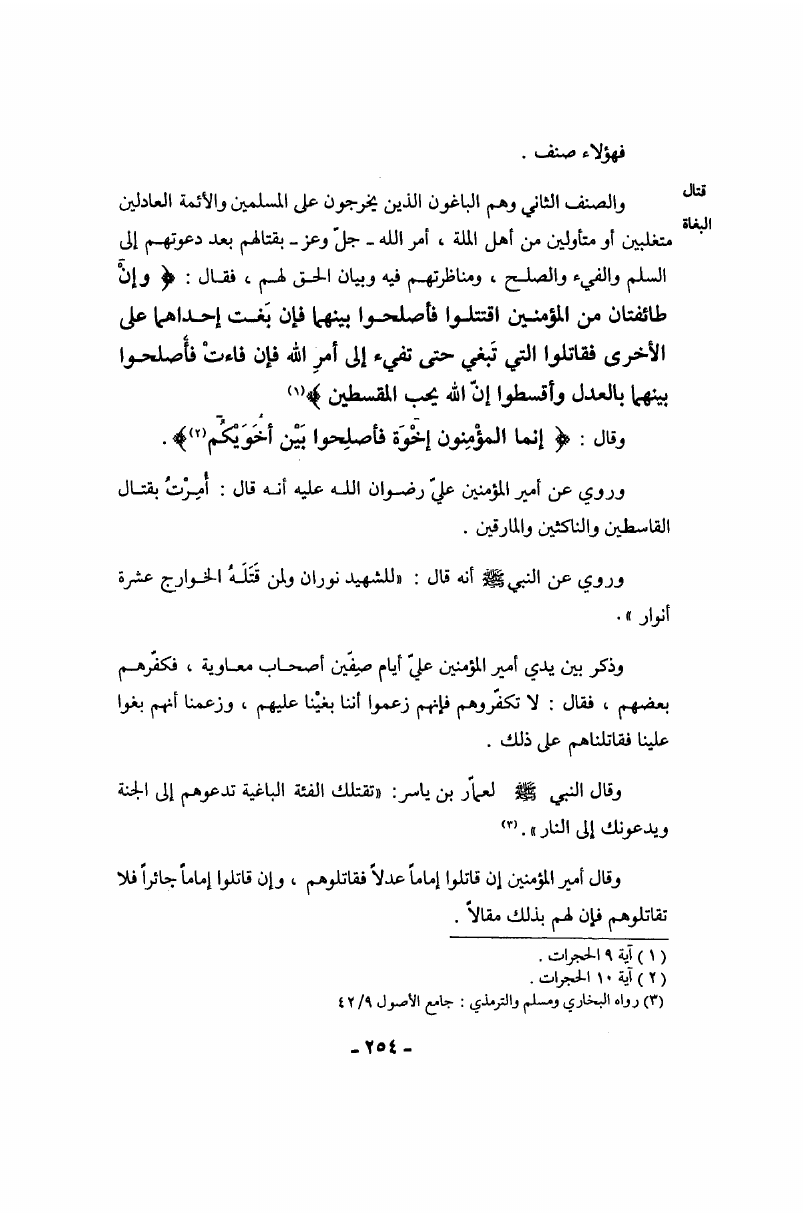 فهؤلاء صنف .
قتال
البغاة
والصنف الثاني وهم الباغون الذين يخرجون على المسلمين والأئمة العادلين
متغلبين أو متأولين من أهل الملة ، أمر الله ـ جلّ وعز ـ بقتالهم بعد دعوتهم إلى
السلم والفيء والصلح ، ومناظرتهم فيه وبيان الحق لهم ، فقال : ﴿ وإنْ
طائفتان من المؤمنين اقتتلوا فأصلحوا بينهما فإن بَغت إحداهما على
الأخرى فقاتلوا التي تَبغي حتى تفيء إلى أمرِ الله فإن فاءتْ فأصلحوا
بينهما بالعدل وأقسطوا إنّ الله يحب المقسطين ﴾(١)
وقال : ﴿ إنما المؤْمِنون إخْوَة فأصلِحوا بَيْن أخَوَيْكُم(٢)﴾ .
وروي عن أمير المؤمنين عليّ رضوان الله عليه أنه قال : أُمِرْتُ بقتال
القاسطين والناكثين والمارقين .
وروي عن النبي ﷺ أنه قال : «للشهيد نوران ولمن قَتَلَهُ الخوارج عشرة
أنوار » .
وذكر بين يدي أمير المؤمنين عليّ أيام صِفِّين أصحاب معاوية ، فكفّرهم
بعضهم ، فقال : لا تكفّروهم فإنهم زعموا أننا بغيْنا عليهم ، وزعمنا أنهم بغوا
علينا فقاتلناهم على ذلك .
وقال النبي ﷺ لعمّار بن ياسر: «تقتلك الفئة الباغية تدعوهم إلى الجنة
ويدعونك إلى النار» .(٣)
وقال أمير المؤمنين إن قاتلوا إماماً عدلاً فقاتلوهم ، وإن قاتلوا إماماً جائراً فلا
تقاتلوهم فإن لهم بذلك مقالاً .
(١) آية ٩ الحجرات .
(٢) آية ١٠ الحجرات .
(٣) رواه البخاري ومسلم والترمذي : جامع الأصول ٤٢/٩
ـ ٢٥٤ ـ